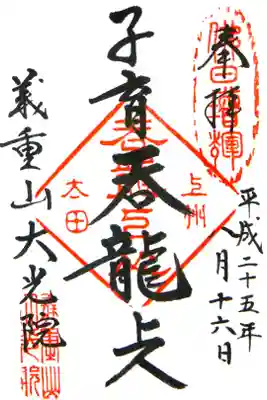 奉拝
佛日增輝
平成二十五年
八月十六日
子育呑龍上人
上州
太田
義重山大光院